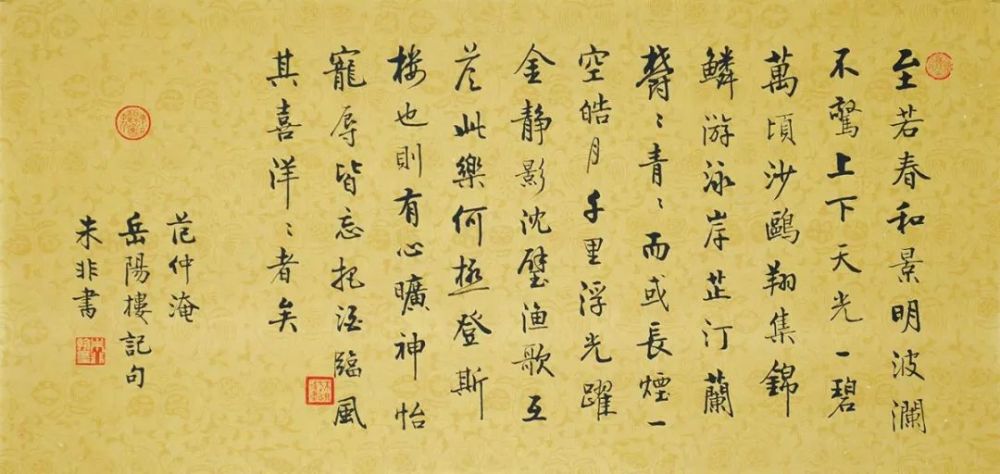 至若春和景明波瀾
不驚上下天光一碧
萬頃沙鷗翔集錦
鱗游泳岸芷汀蘭
欝〻青〻而或長煙一
空皓月千里浮光躍
金静影沈璧渔歌互
荅此樂何極登斯
楼也則有心曠神怡
寵辱皆忘把酒臨風
其喜洋〻者矣
范仲淹
岳陽樓記句
朱非書